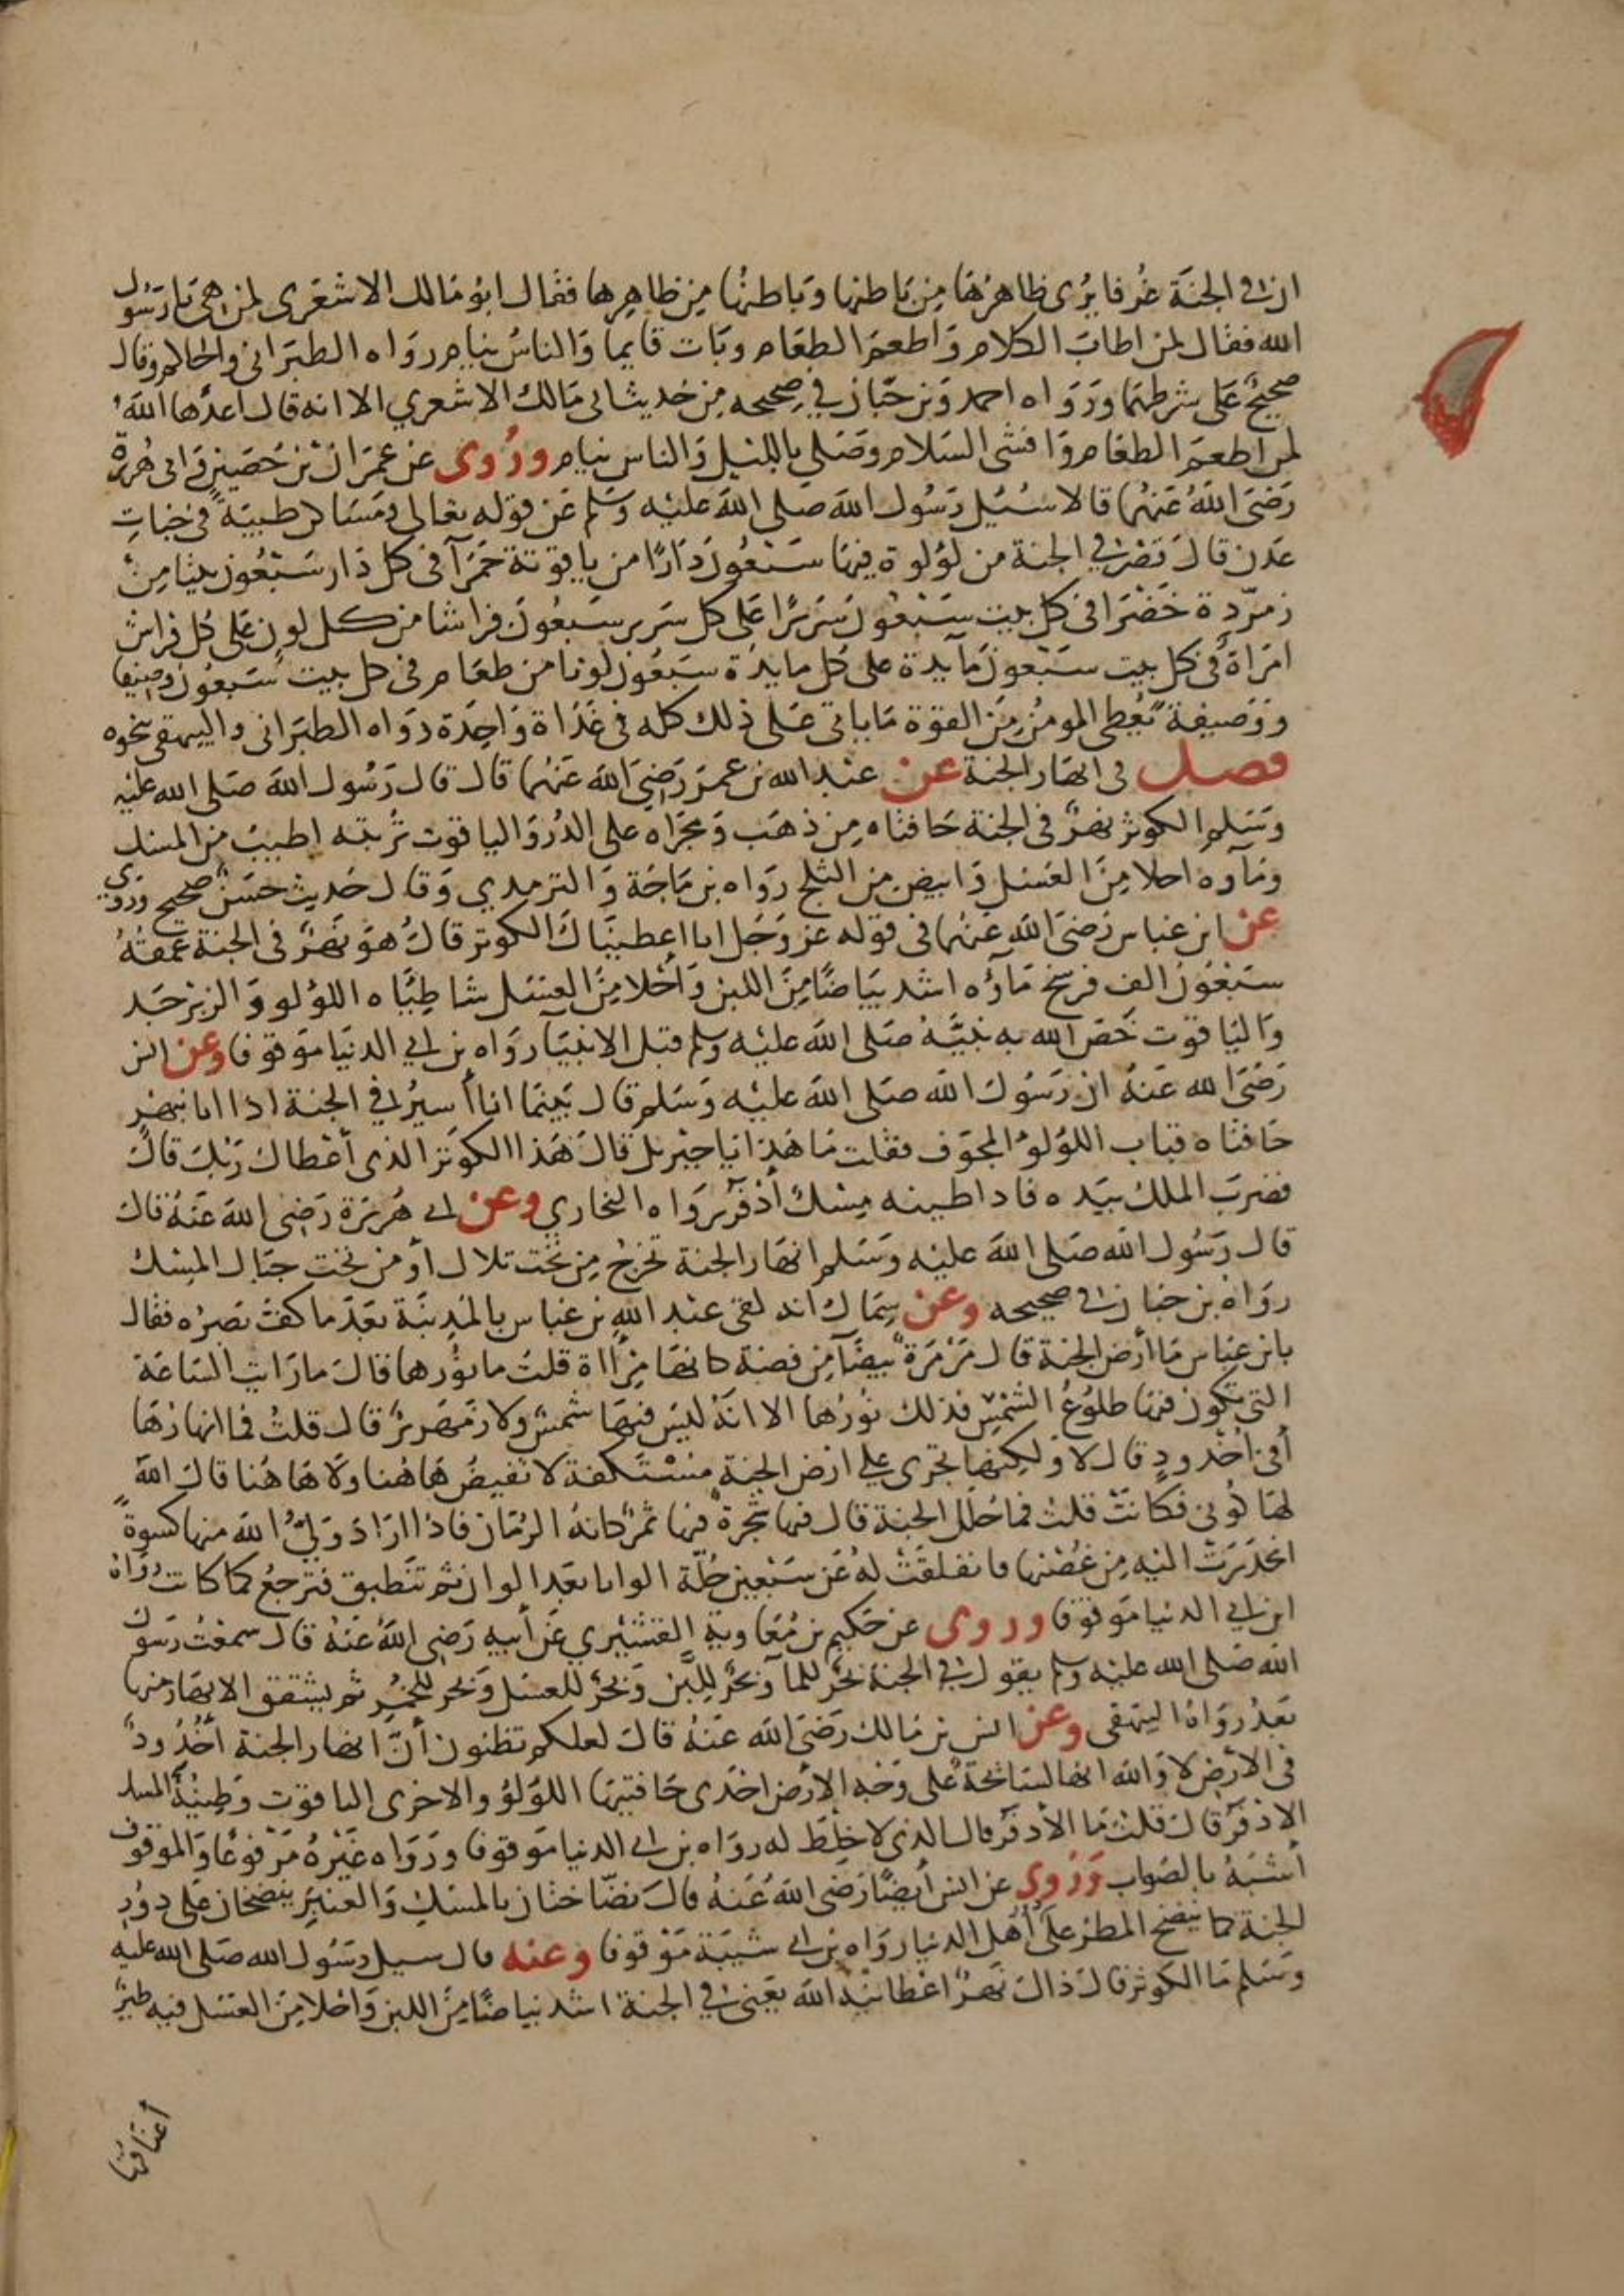 ان في الجنة غرفا يرى ظاهرها من باطنها وباطنها من ظاهرها فقال ابو مالك الاشعرى لمن هى يا رسول
الله فقال لمن اطاب الكلام واطعم الطعام وبات قايما والناس نيام رواه الطبرانى والحاكم وقال
صحيح على شرطهما ورواه احمد وبن حبان في صحيحه من حديث ابى مالك الاشعري الا انه قال اعدها الله
لمن اطعم الطعام وافشى السلام وصلى بالليل والناس نيام وروى عن عمران بن حصين وابى هريرة
رضى الله عنهما قالا سئيل رسول الله صلى الله عليه وسلم عن قوله تعالى ومساكن طيبة في جنات
عدن قال قصر في الجنة من لؤلوة فيها سبعون دارًا من ياقوتة حمرآ فى كل دار سبعون بيتا من
زمردة خضرا فى كل بيت سبعون سريرًا على كل سرير سبعون فراشا من كل لون على كل فراش
امراة فى كل بيت سبعون مآيدة على كل مايدة سبعون لونا من طعام فى كل بيت سبعون وصيفا
ووصيفة يعطى المومن من القوة ما ياتى على ذلك كله في غداة واحدة رواه الطبرانى والبيهقى بنحوه
فصل فى انهار الجنة عن عبد الله بن عمر رضى الله عنهما قال قال رسول الله صلى الله عليه
وسلم الكوثر نهر فى الجنة حافتاه من ذهب ومجراه على الدر واليا قوت تربته اطيب من المسك
ومآوه احلا من العسل وابيض من الثلج رواه بن ماجة والترمدي وقال حديث حسن صحيح وروى
عن ابن عباس رضى الله عنهما فى قوله عز وجل انا اعطيناك الكوثر قال هو نهر فى الجنة عمقه
سبعون الف فرسخ مآؤه اشد بياضًا من اللبن وأحلا من العسل شاطياه اللؤلو والزبرجد
واليا قوت خص الله به نبيه صلى الله عليه وسلم قبل الانبيآ رواه بن ابي الدنيا موقوفا وعن انس
رضى الله عنه ان رسول الله صلى الله عليه وسلم قال بينما انا أسير في الجنة اذا انا بنهر
حافتاه قباب اللؤلؤ المجوف فقلت ما هذا يا جبريل قال هذا الكوثر الذى أعطاك ربك قال
فضرب الملك بيده فاذا طينه مسك أذفر رواه البخاري وعن ابى هريرة رضى الله عنه قال
قال رسول الله صلى الله عليه وسلم انهار الجنة تخرج من تحت تلال أو من تحت جبال المسك
رواه بن حبان في صحيحه وعن سماك انه لقى عبد الله بن عباس بالمدينة بعد ما كف بصره فقال
يا بن عباس ما ارض الجنة قال مرمرة بيضآ من فضة كانها مرأاة قلت ما نورها قال ما رايت الساعة
التى تكون فيها طلوع الشمس فذلك نورها الا انه ليس فيها شمس ولا زمهرير قال قلت فما انهارها
أفى أخدود قال لا ولكنها تجرى على ارض الجنة مستكفة لا تفيض هاهنا ولا هاهنا قال الله
لها كونى فكانت قلت فما حلل الجنة قال فيها شجرة فيها ثمر كانه الرمان فاذا اراد ولي الله منها كسوة
انحدرت اليه من غصنها فانفلقت له عن سبعين حلة الوانا بعد الوان ثم تنطبق فترجع كما كانت رواه
ابن ابي الدنيا موقوفا وروى عن حكيم بن معاوية القشيري عن أبيه رضى الله عنه قال سمعت رسول
الله صلى الله عليه وسلم يقول في الجنة بحر للمآ وبحر للبن وبحر للعسل وبحر للخمر ثم يشقق الانهار منها
بعد رواه البيهقى وعن انس بن مالك رضى الله عنه قال لعلكم تظنون أن انهار الجنة أخدود
فى الارض لا والله انها لسائحة على وجه الارض احدى حافتيها اللؤلؤ والاخرى اليا قوت وطينه المسك
الاذفر قال قلت ما الأذفر قال الذى لا خلط له رواه بن ابى الدنيا موقوفا ورواه غيره مرفوعا والموقوف
أشبه بالصواب وروى عن انس أيضًا رضى الله عنه قال نضاختان بالمسك والعنبر ينضخان على دور
الجنة كما ينضخ المطر على أهل الدنيا رواه بن ابى شيبة موقوفا وعنه قال سيل رسول الله صلى الله عليه
وسلم ما الكوثر قال ذاك نهر اعطانيه الله يعنى في الجنة اشد بياضًا من اللبن واحلا من العسل فيه طير
أعناقها